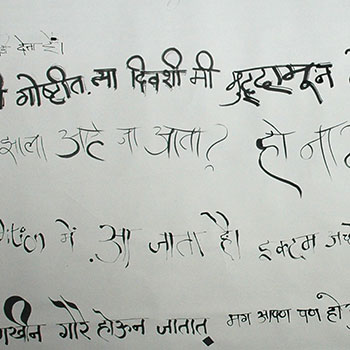 देता है।
गोष्टीत. त्या दिवशी मी मुद्दामून
झाला आहे जा आता? हो ना
में. आ जाता है। इकदम
गोरे होऊन जातात. मग आपण पण हो